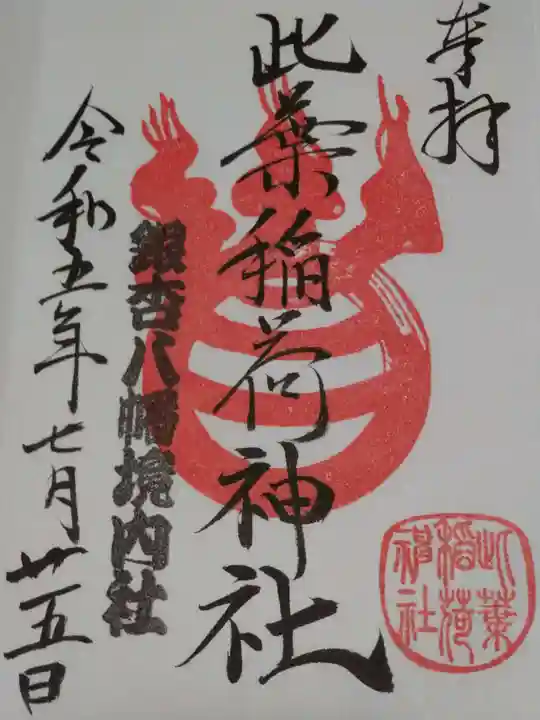 奉拝
此葉稲荷神社
銀杏八幡境内社
令和五年七月廿五日
此葉
稲荷
神社